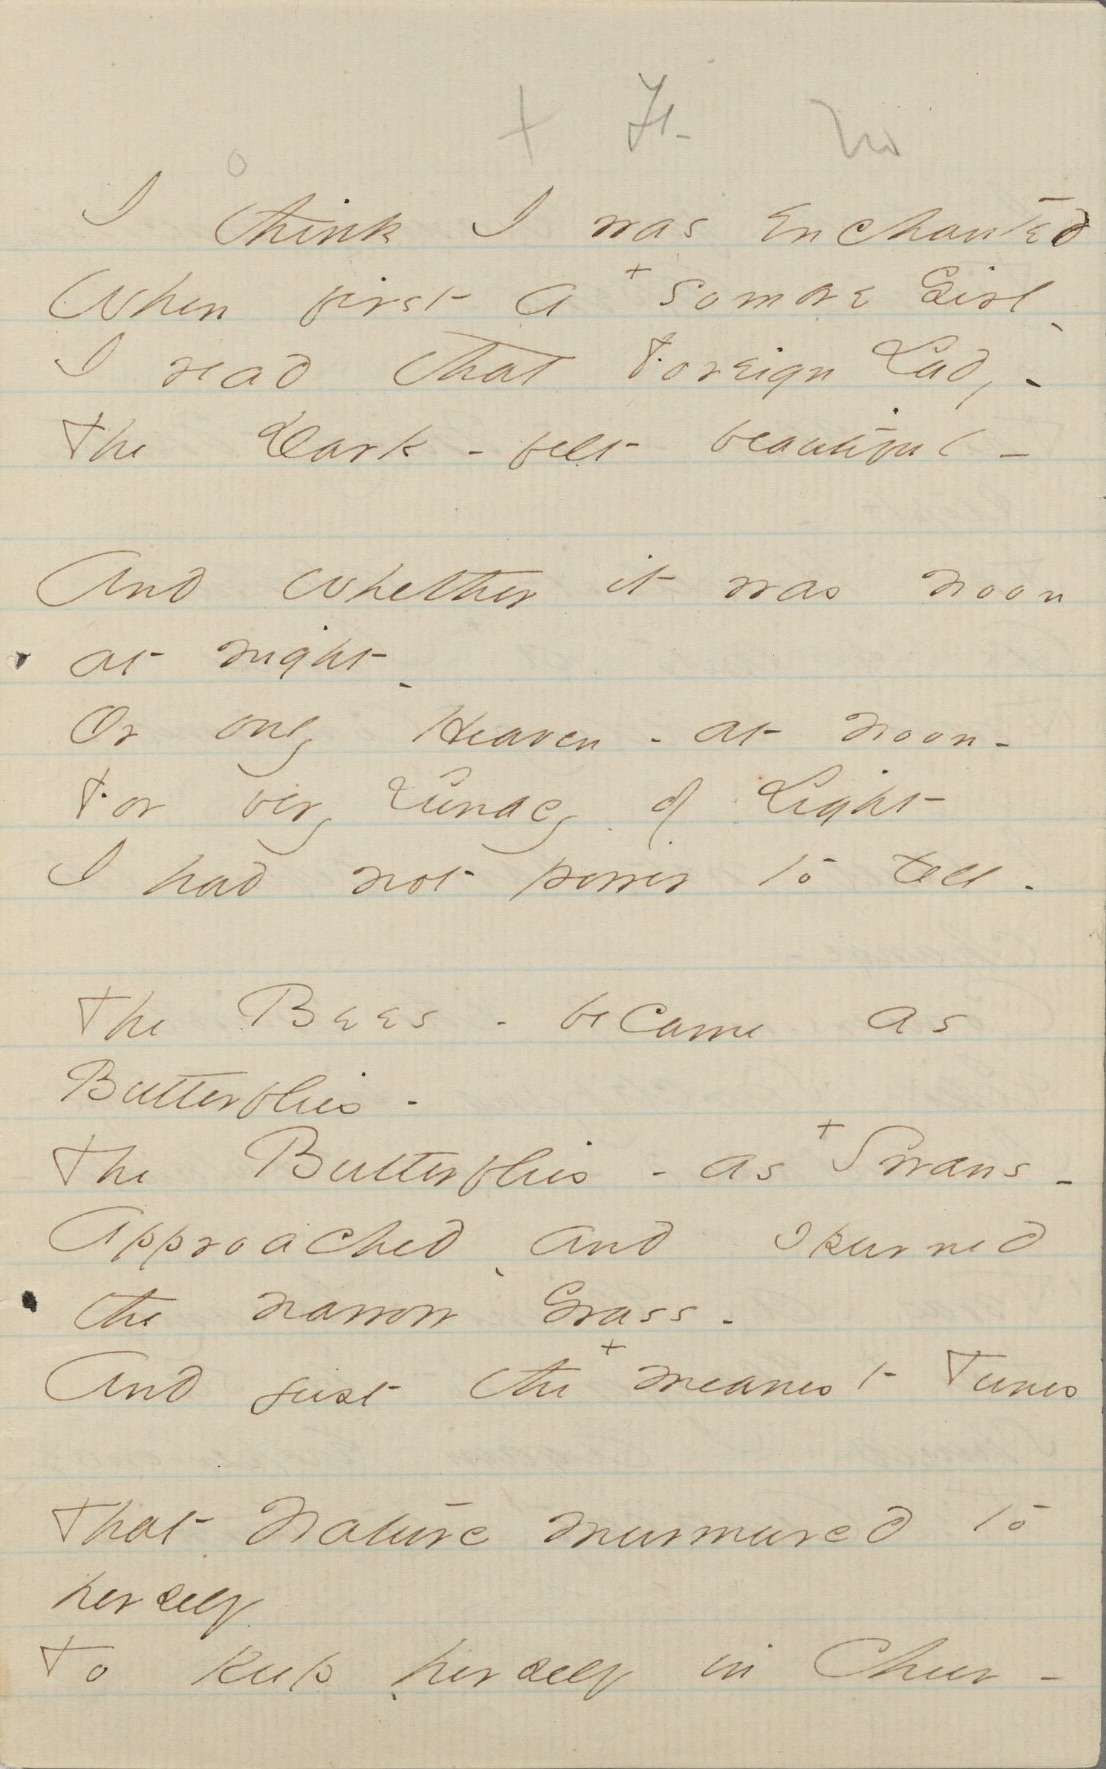 I think I was Enchanted
When first a + Sombre Girl -
I read that Foreign Lady -
The Dark - felt beautiful -
And whether it was noon
at night -
Or only Heaven - at noon -
For very Lunacy of Light
I had not power to tell -
The Bees - became as
Butterflies -
The Butterflies - as + Swans -
Approached - and spurned
the narrow Grass -
And just the + meanest Tunes
That Nature murmured to
herself
To keep herself in Cheer -